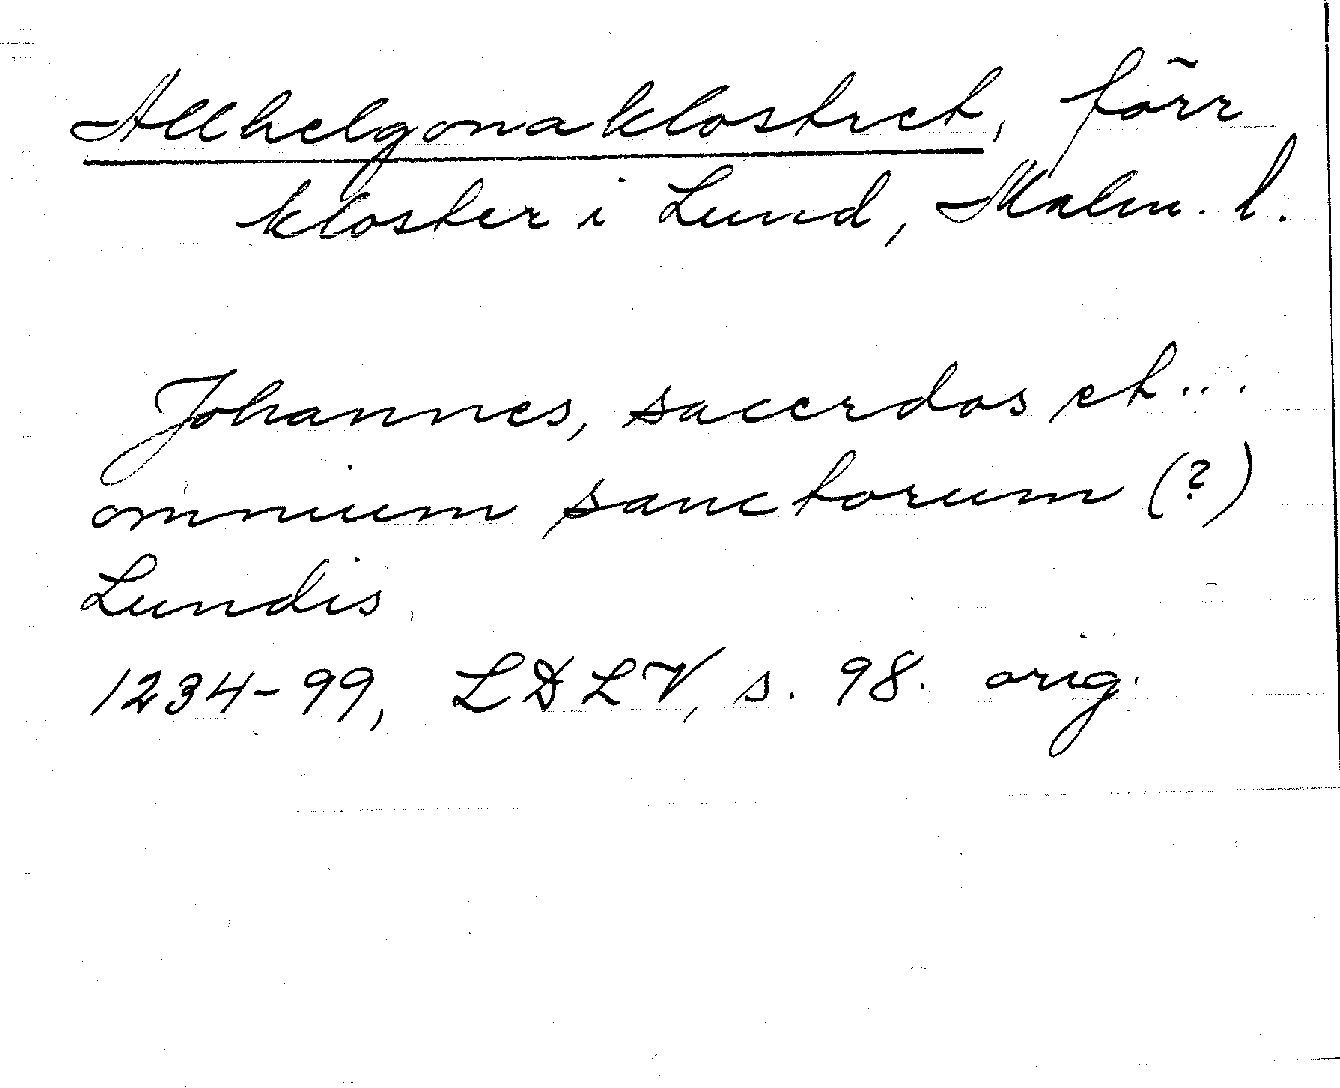 Allhelgonaklostret, förr
kloster i Lund, Malm. l.
Johannes, sacerdos et...
omnium sanctorum (?)
Lundis
1234-99, LDLV, s. 98. orig.